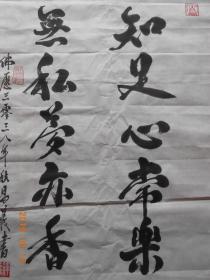 知足心常樂
無私夢亦香
佛歷二零三八年
書